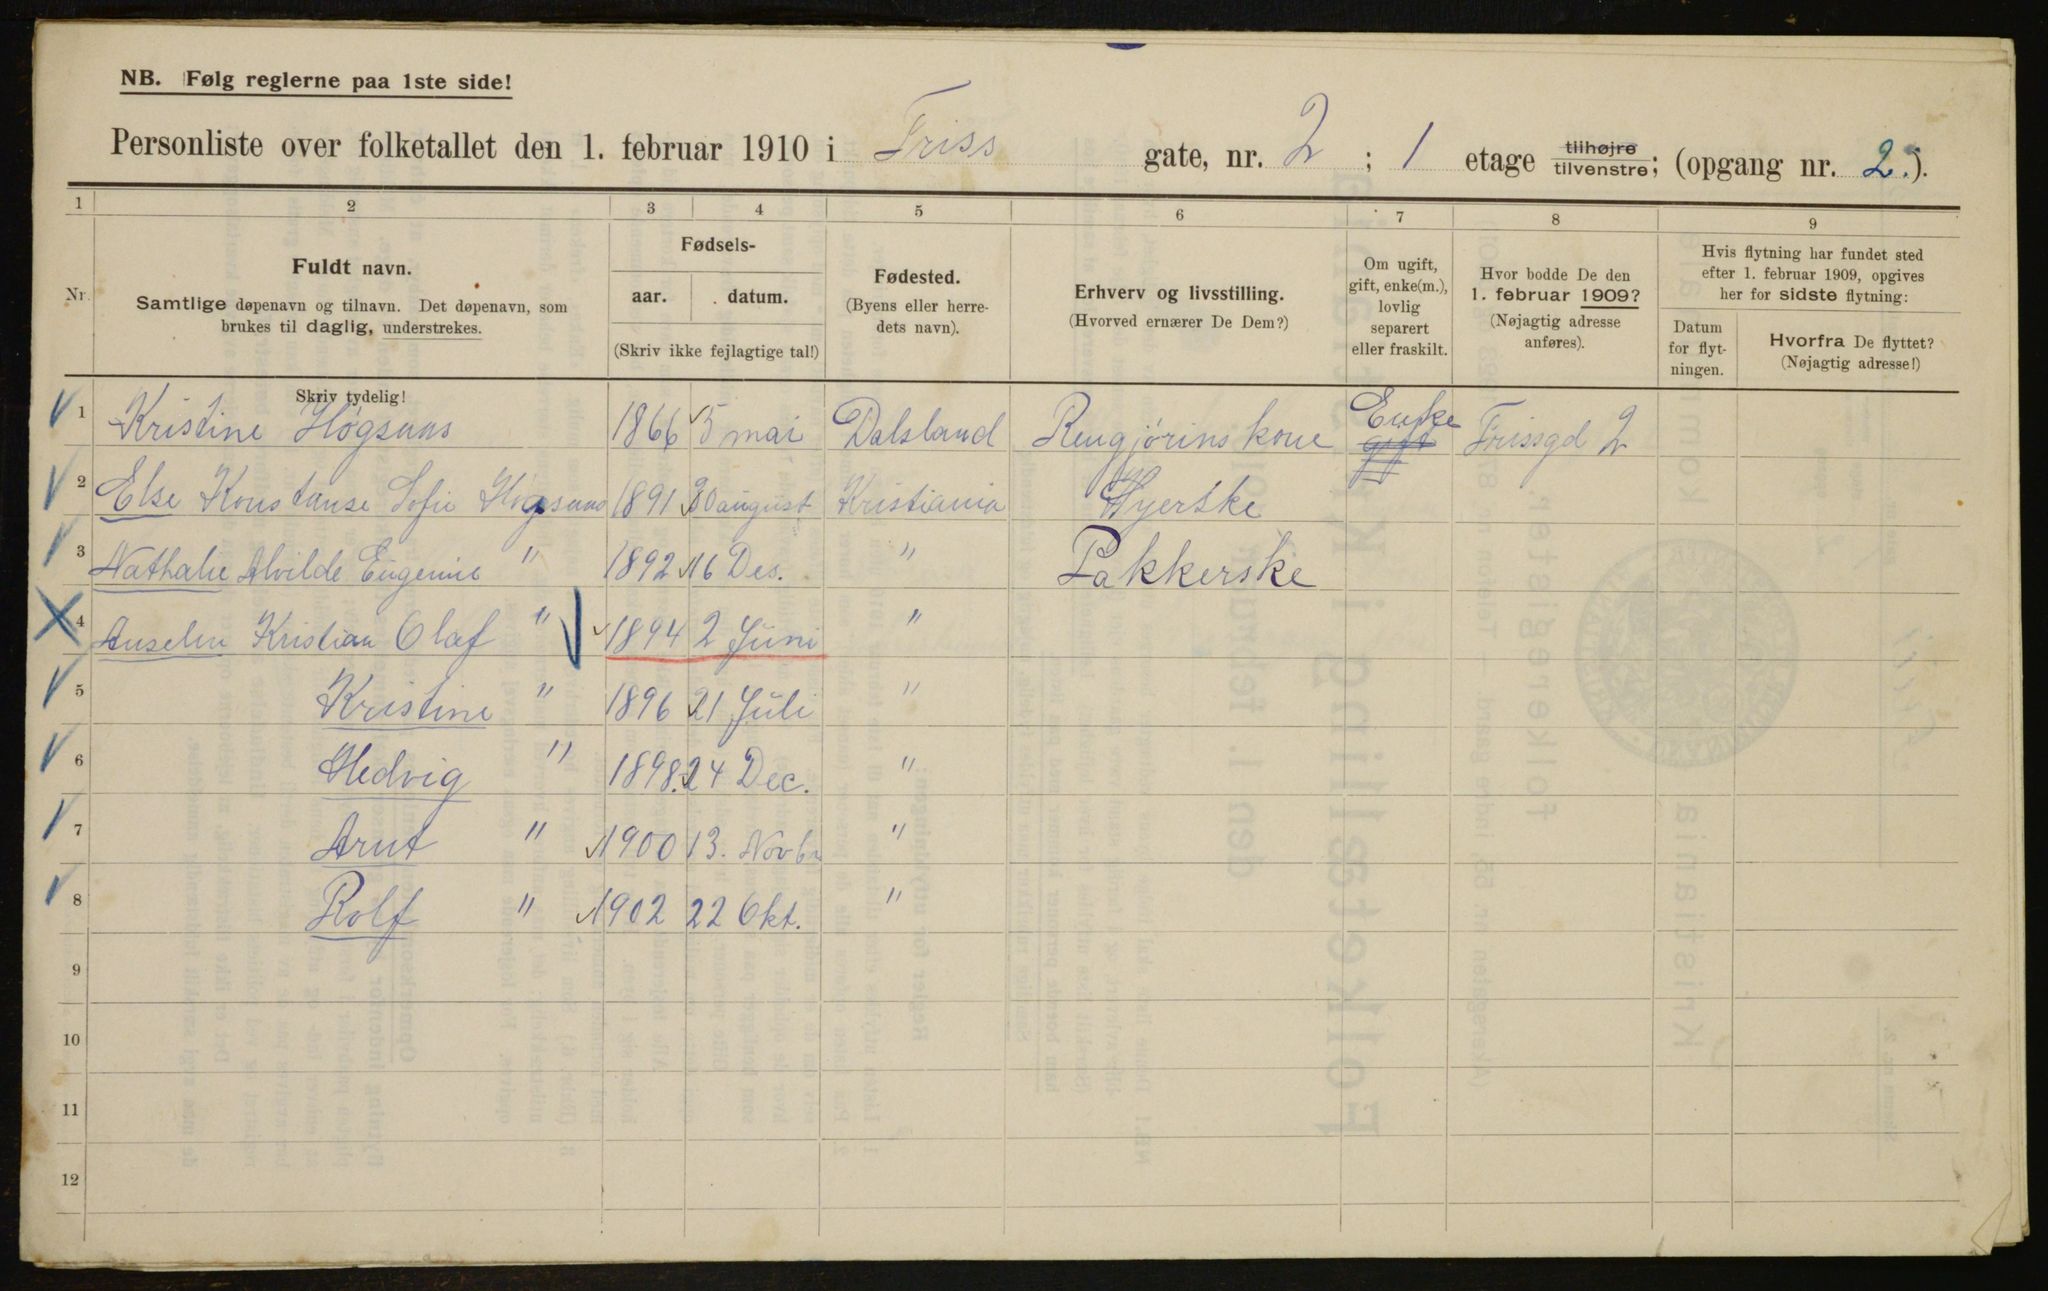 NB. Følg reglerne paa 1ste side!
Personliste over folketallet den 1. februar 1910 i Friss gate, nr. 2 ; 1 etage tilhøjre tilvenstre; (opgang nr. 2.).
1 2 3 4 5 6 7 8 9
Nr.
Fuldt navn.
Samtlige døpenavn og tilnavn. Det døpenavn, som
brukes til daglig, understrekes.
Fødsels-
aar. datum.
(Skriv ikke fejlagtige tal!)
Fødested.
(Byens eller herre-
dets navn).
Erhverv og livsstilling.
(Hvorved ernærer De Dem?)
Om ugift,
gift, enke(m.),
lovlig
separert
eller fraskilt.
Hvor bodde De den
1. februar 1909?
(Nøjagtig adresse
anføres).
Hvis flytning har fundet sted
efter 1. februar 1909, opgives
her for sidste flytning:
Datum
for flyt-
ningen.
Hvorfra De flyttet?
(Nøjagtig adresse!)
Skriv tydelig!
1 Kristine Høgsaas 1866 5 mai Dalsland Rengjørinskone gift Enke Frissgd 2
2 Else Konstanse Sofie Høgsaas 1891 30 august Kristiania Syerske
3 Nathalie Alvilde Eugenie " 1892 16 Des. " Pakkerske
4 Anselm Kristian Olaf " 1894 2 Juni "
5 Kristine " 1896 21 Juli "
6 Hedvig " 1898. 24 Dec. "
7 Arnt " 1900 13. Novbr "
8 Rolf " 1902 22 Okt. "
9
10
11
12